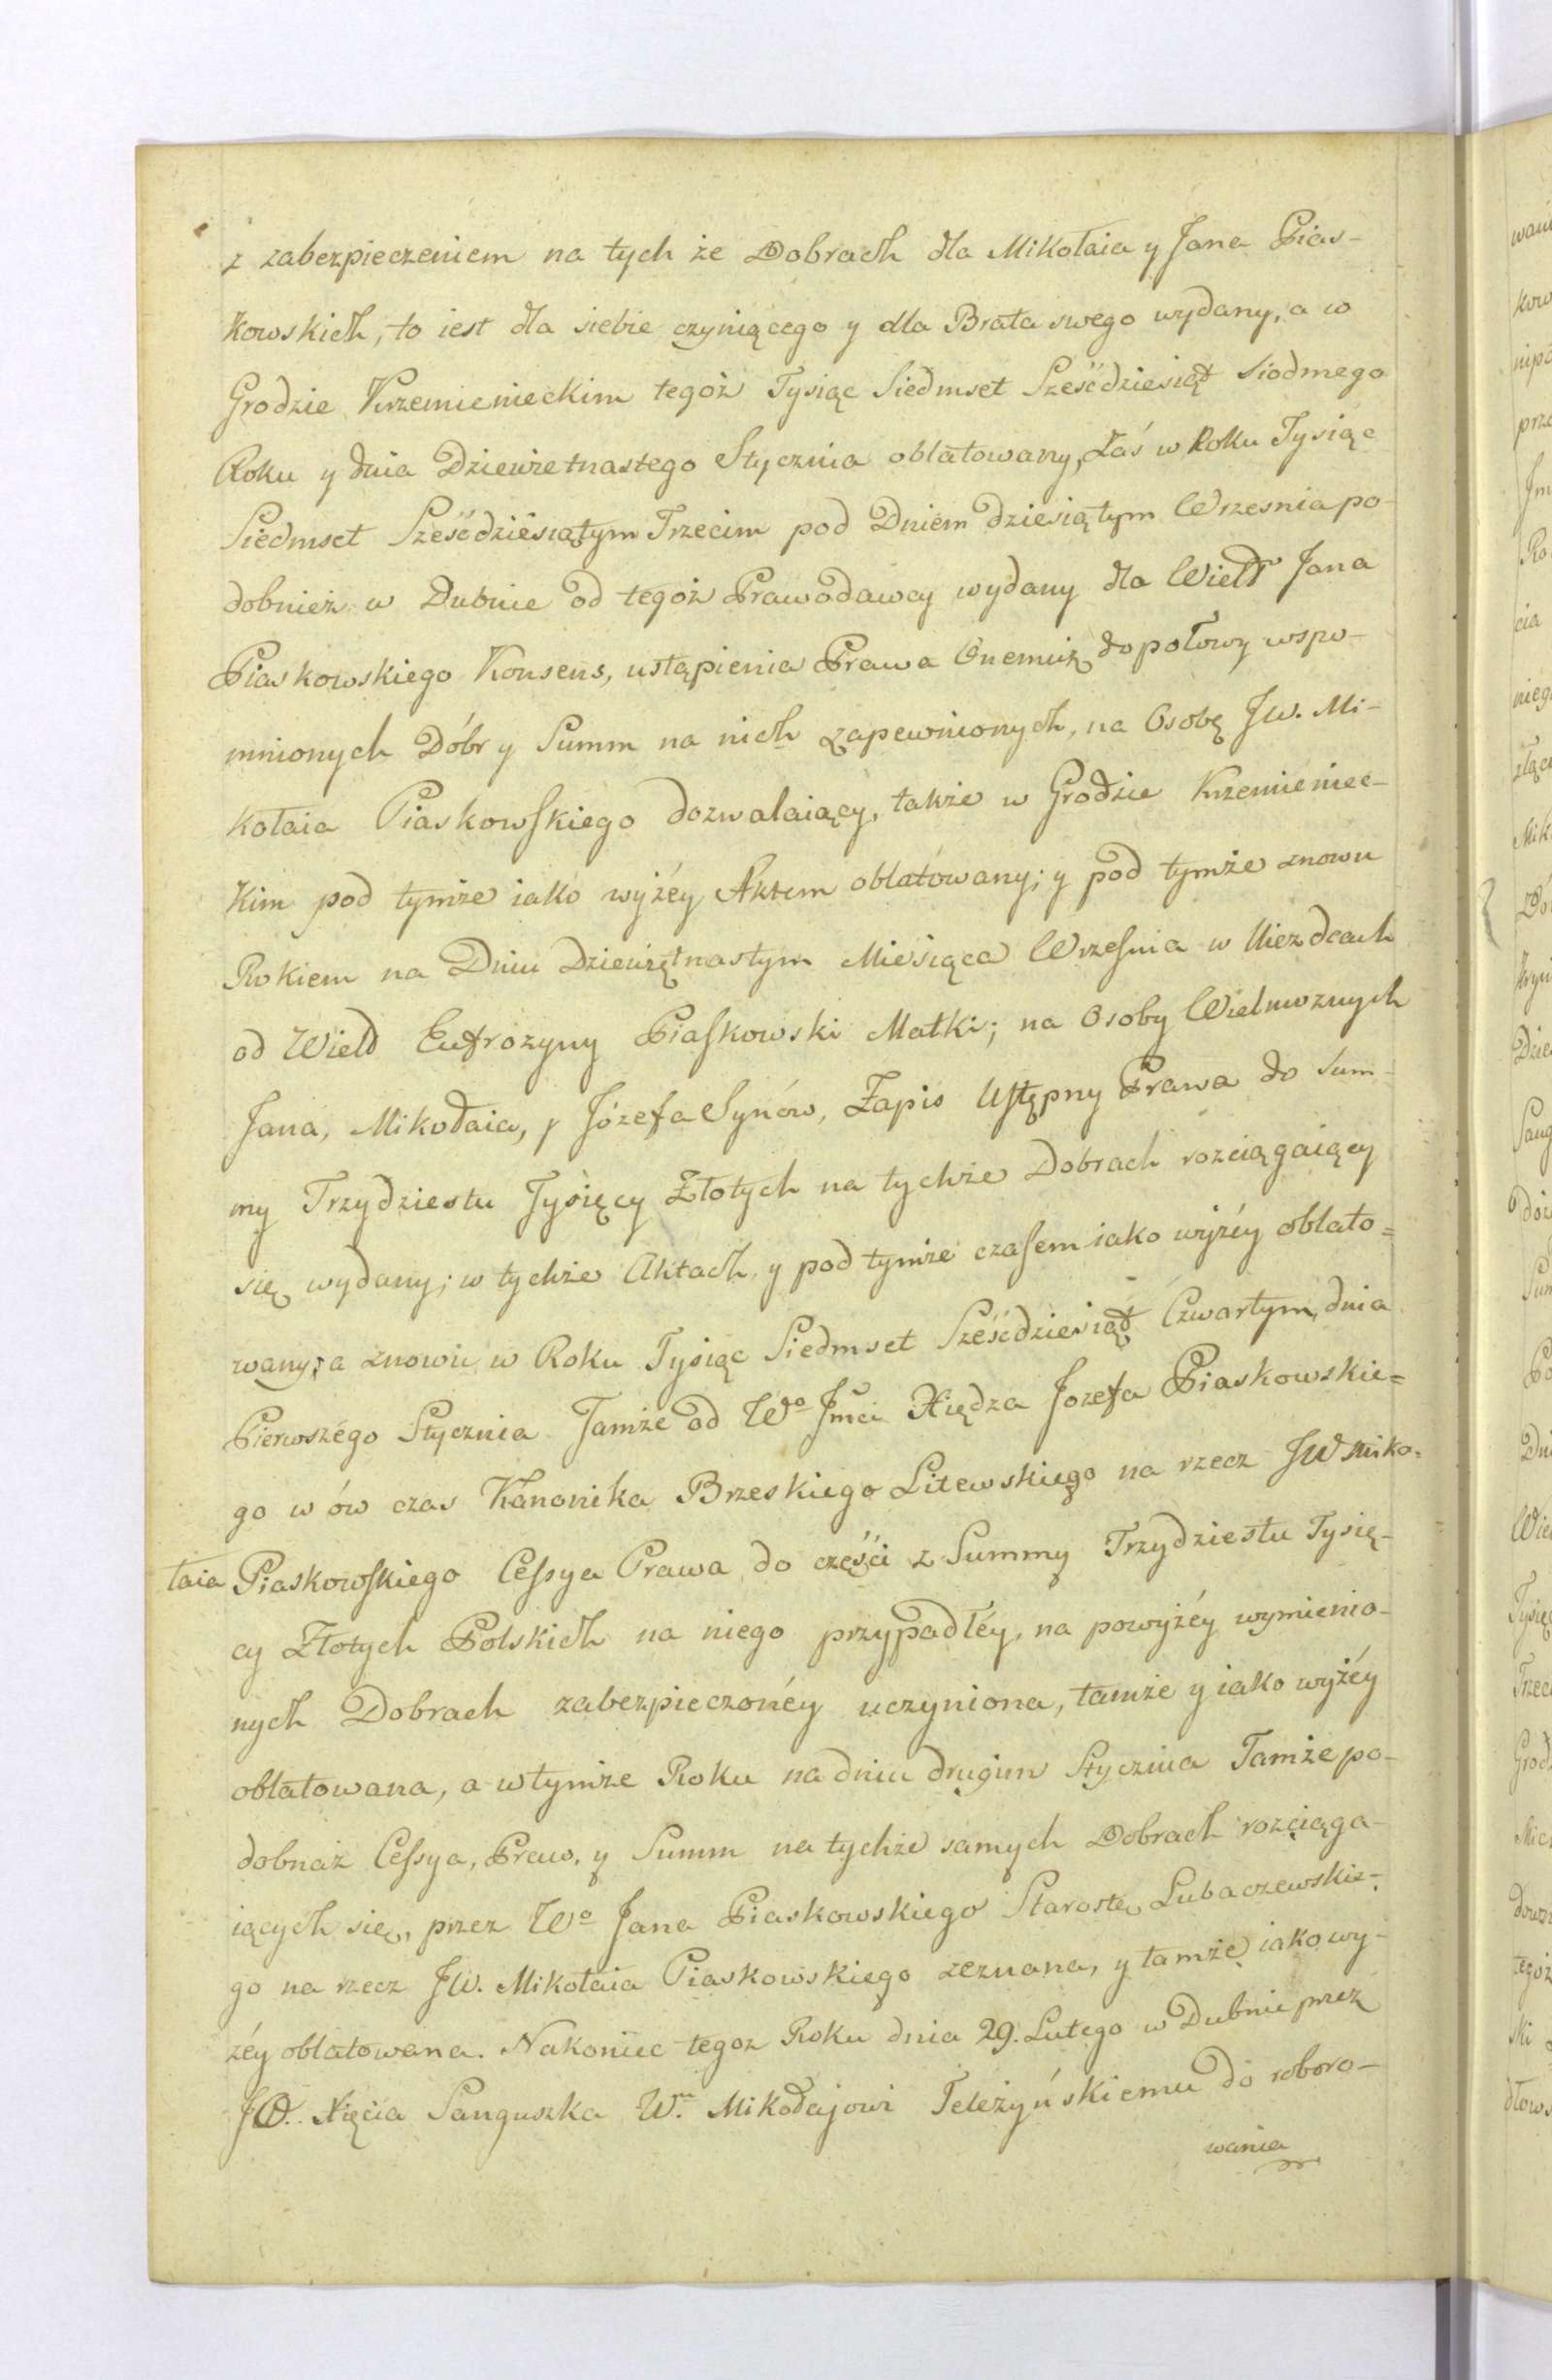 z zabezpieczeniem na tych że Dobrach dla Mikołaia y Jana Pias-
kowskich, to iest dla siebie czyniącego y dla Brata swego wydany, a w
Grodzie Krzemienieckim tegoż Tysiąc Siedmset Sześćdziesiąt Siodmego
Roku y dnia Dziewietnastego Stycznia oblatowany, Zaś w Roku Tysiąc
Siedmset Sześćdziesiątym Trzecim pod Dniem dziesiątym Wrzesnia po-
dobnież w Dubnie od tegoż Prawodawcy wydany dla Wield Jana
Piaskowskiego Konsens, ustąpienia Prawa Onemuż do połowy wspo-
mnionych Dóbr y Summ na nich zapewnionych, na Osobę JW. Mi-
kołaia Piaskowskiego dozwalaiący, także w Grodzie Krzemieniec-
kim pod tymże iako wyżéy Aktem oblatowany; y pod tymże znowu
Rokiem na Dniu Dziewiętnastym Miesiąca Wrzesnia w Uiezdcach
od Wield Eufrozyny Piaskowski Matki; na Osoby Wielmoznych
Jana, Mikołaia, y Józefa Synów, Zapis Ustępny Prawa do Sum-
my Trzydziestu Tysięcy Złotych na tychże Dobrach rozciągaiący
się wydany; w tychże Aktach y pod tymże czasem iako wyżéy oblato=
wany, a znowu w Roku Tysiąc Siedmset Sześćdziesiąt Czwartym, dnia
Pierwszégo Stycznia Tamże od Wo Jmci Xiędza Jozefa Piaskowskie=
go w ów czas Kanonika Brzeskiego Litewskiego na rzecz JW Miko=
łaia Piaskowskiego Cessya Prawa do części z Summy Trzydziestu Tysię-
cy Złotych Polskich na niego przypadłéy, na powyżéy wymienio-
nych Dobrach zabezpieczonéy uczyniona, tamże y iako wyżéy
oblatowana, a w tymże Roku na dniu drugim Stycznia Tamże po-
dobnaż Cessya, Praw, y Summ na tychże samych Dobrach rozciąga-
iących się, przez Wo Jana Piaskowskiego Starostę Lubaczewskie-
go na rzecz JW. Mikołaia Piaskowskiego zeznana, y tamże iako wy-
żéy oblatowana. Nakoniec tegoz Roku dnia 29. Lutego w Dubnie przez
JO. Xięcia Sanguszka W. Mikołajowi Teleżyńskiemu do roboro-
wania